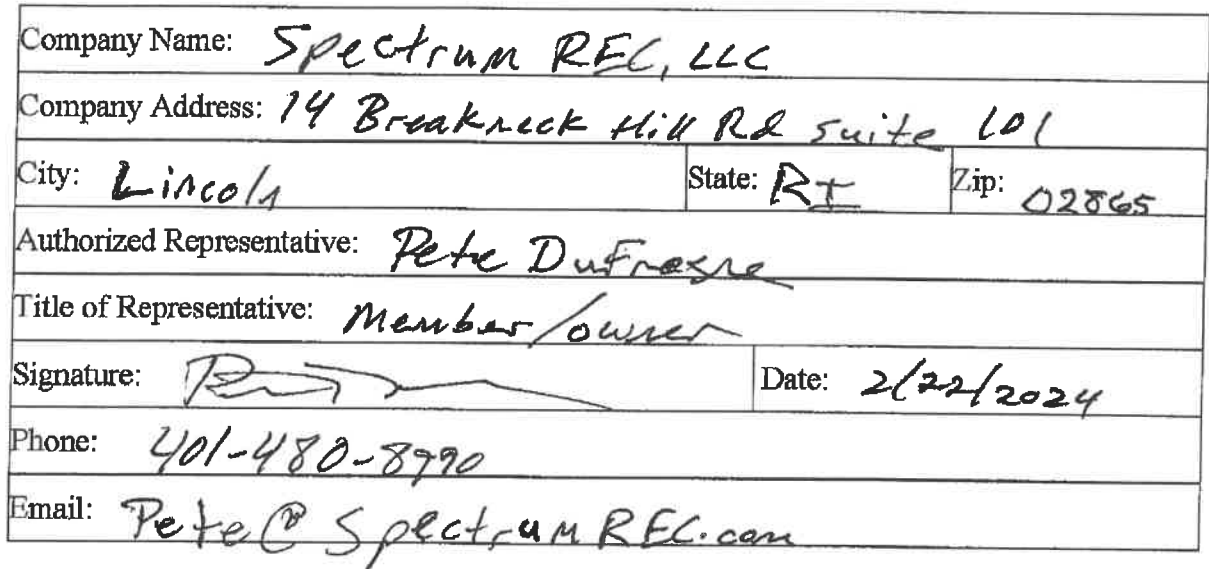 Company Name: Spectrum REC, LLC
Company Address: 14 Breakneck Hill Rd suite 101
City: Lincoln State: RI Zip: 02865
Authorized Representative: Pete DuFresne
Title of Representative: Member/owner
Signature: Date: 2/22/2024
Phone: 401-480-8990
Email: Pete@SpectrumREC.com